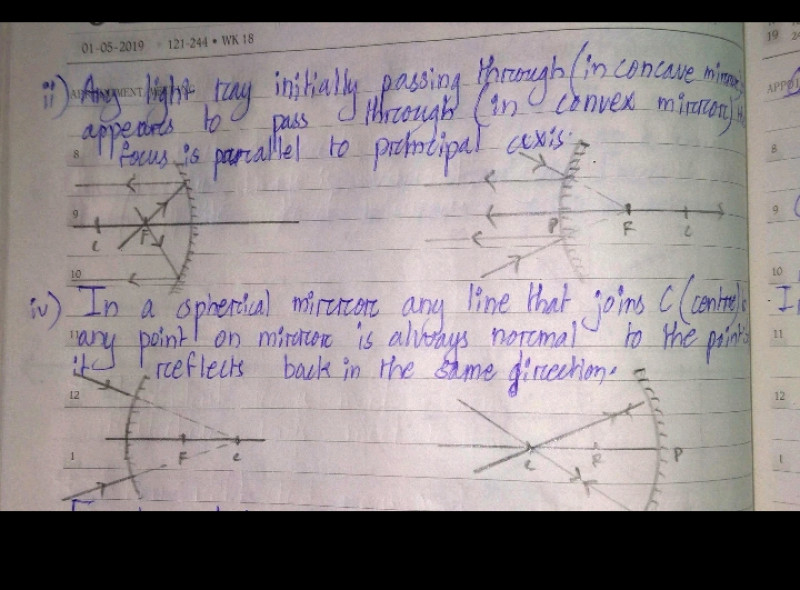 01-05-2019 • 121-244 • WK 18
ii) Any light ray initially passing through (in concave mirror)
appears to pass through (in convex mirror)
focus is parallel to principal axis.
8
9
10
C F
P F C
iv) In a spherical mirror any line that joins C (centre)
any point on mirror is always normal to the point
it reflects back in the same direction.
11
12
1
F C
C F P
19
APPOI
8
9
10
11
12
1